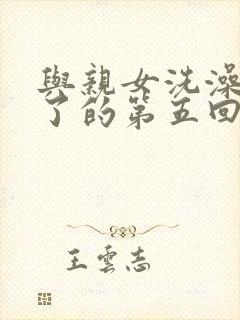 與親女洗澡
了的第五回
王雲志